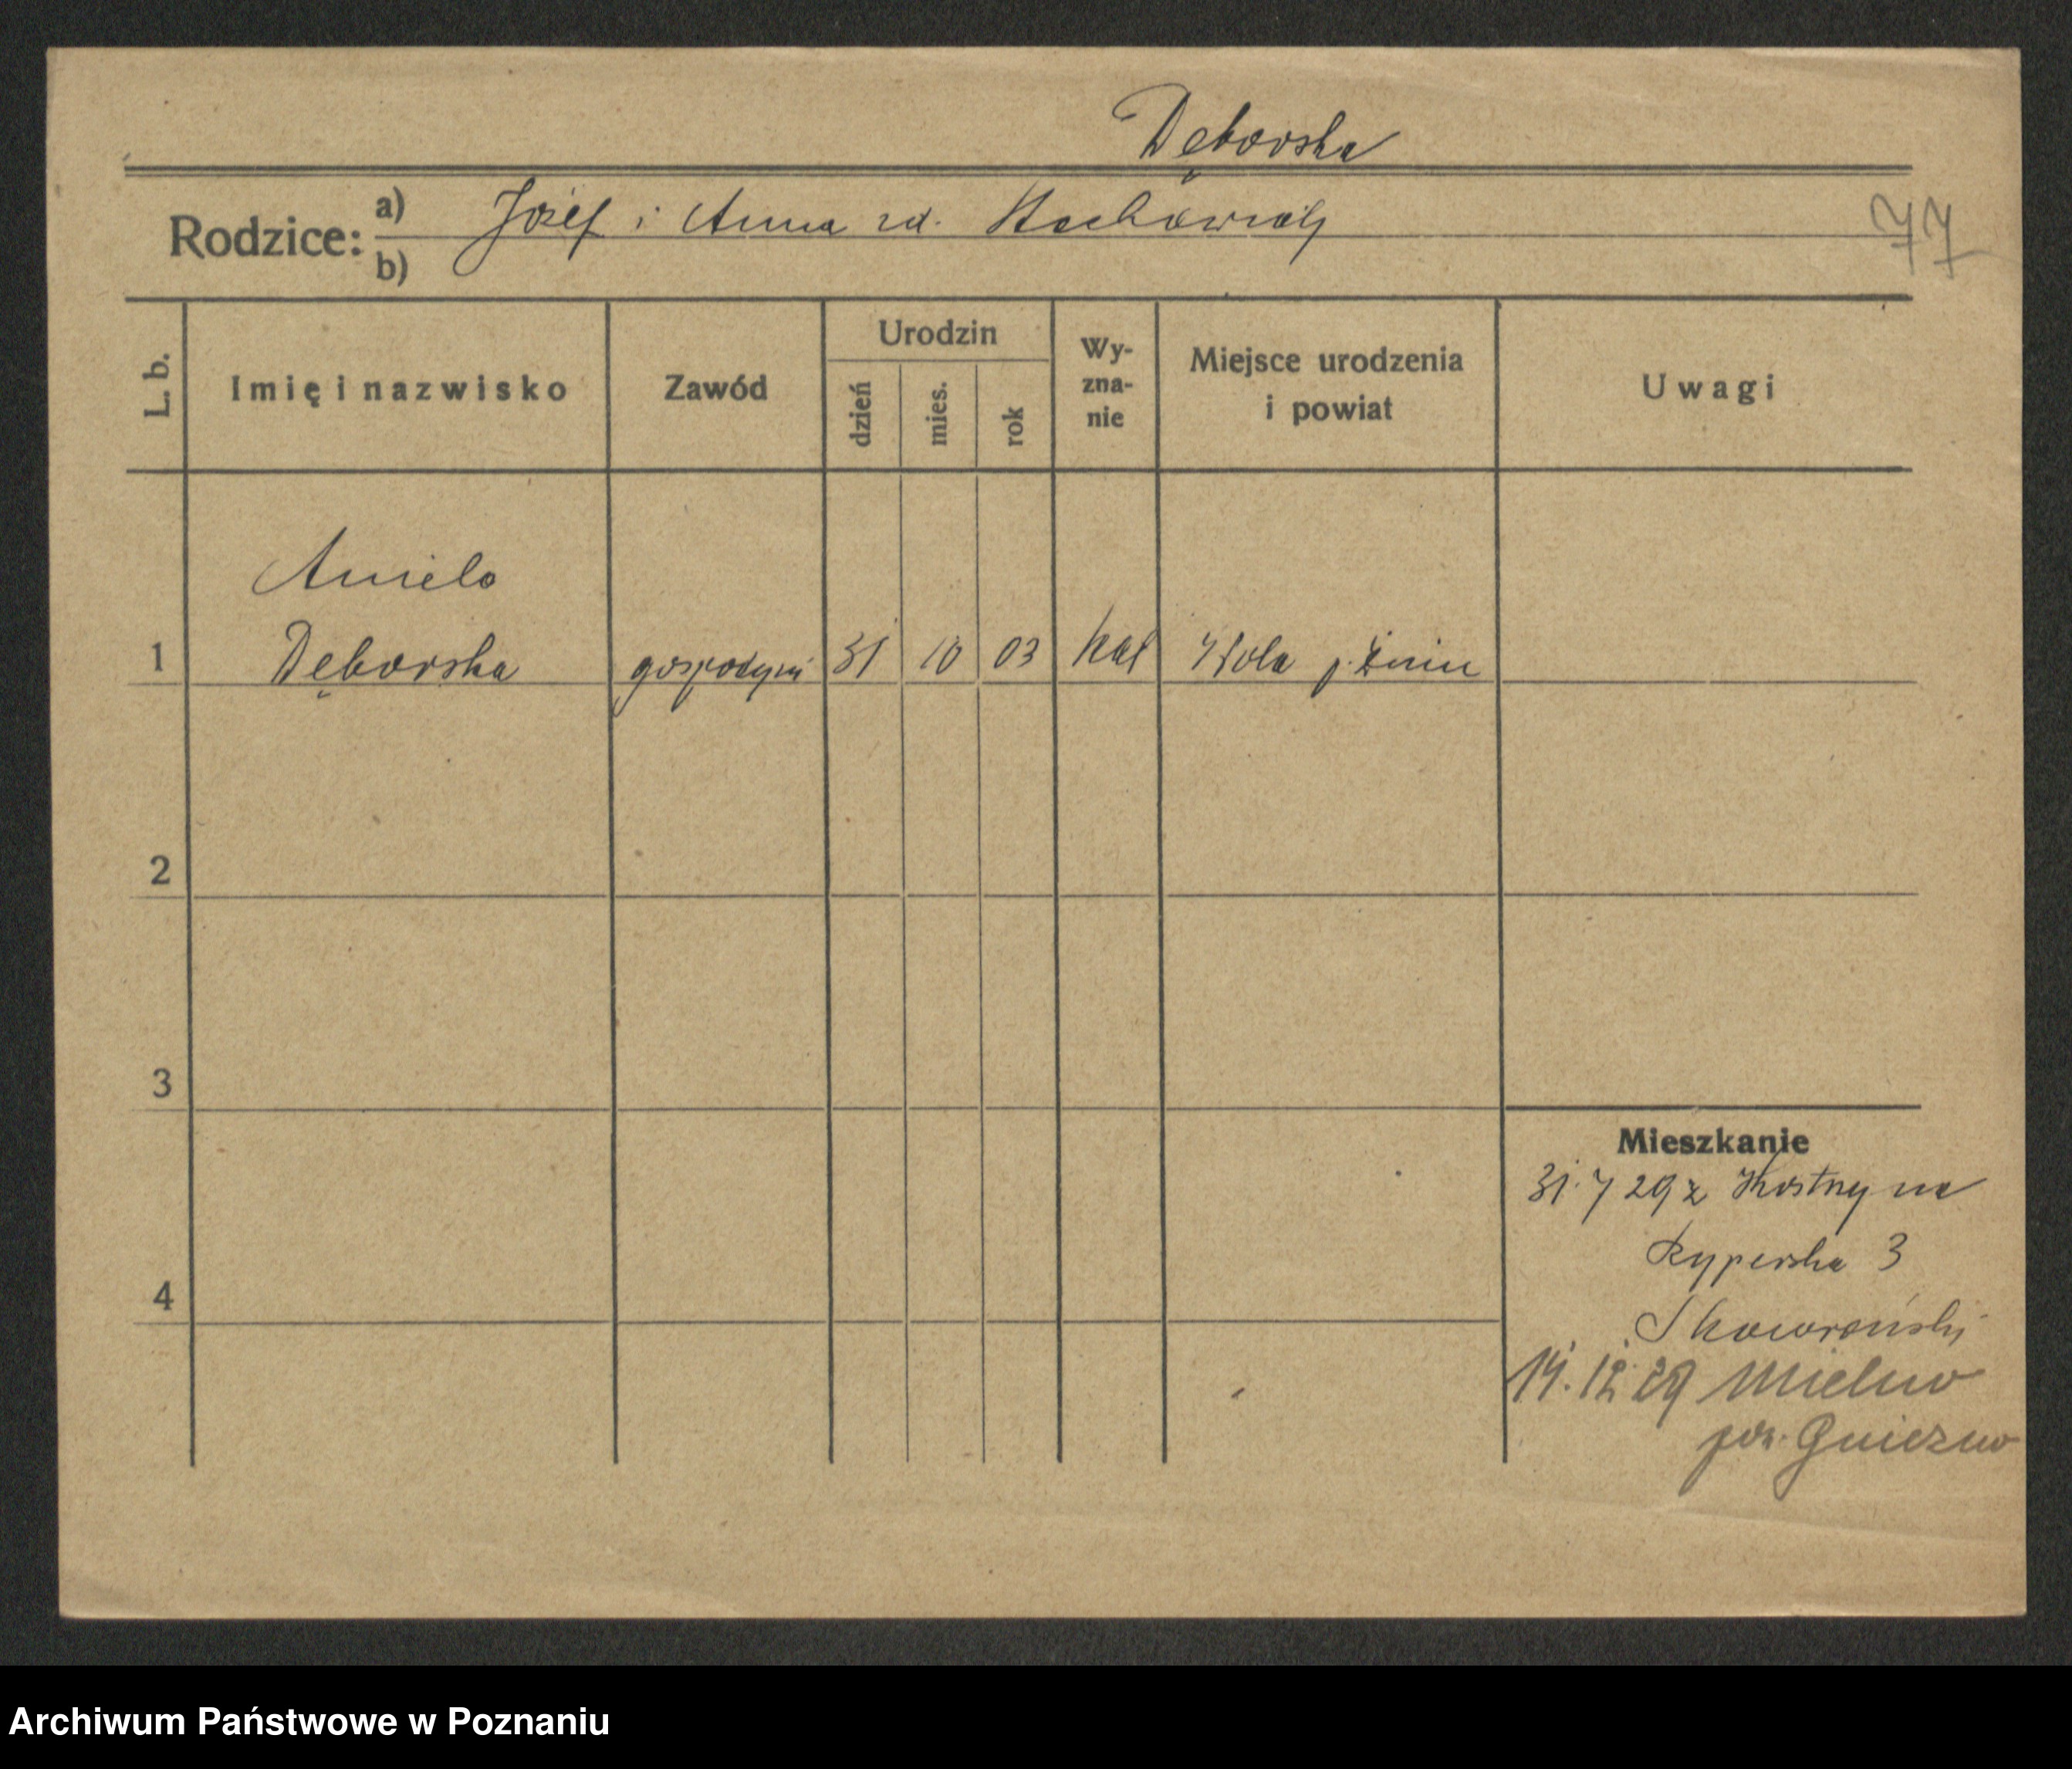 Dęborska
Rodzice: a) Józef i Anna zd. Stachowiak
b)
77
L. b. Imię i nazwisko Zawód Urodzin dzień mies. rok Wy-zna-nie Miejsce urodzenia i powiat Uwagi
Aniela
1 Dęborska gospodyni 31 10 03 kat Wola p. Żnin
2
3
Mieszkanie
31.7 29 z Kostrzyna
3
4
Skoworoński
14.12.29 Mielno
pow. Gniezno
Archiwum Państwowe w Poznaniu